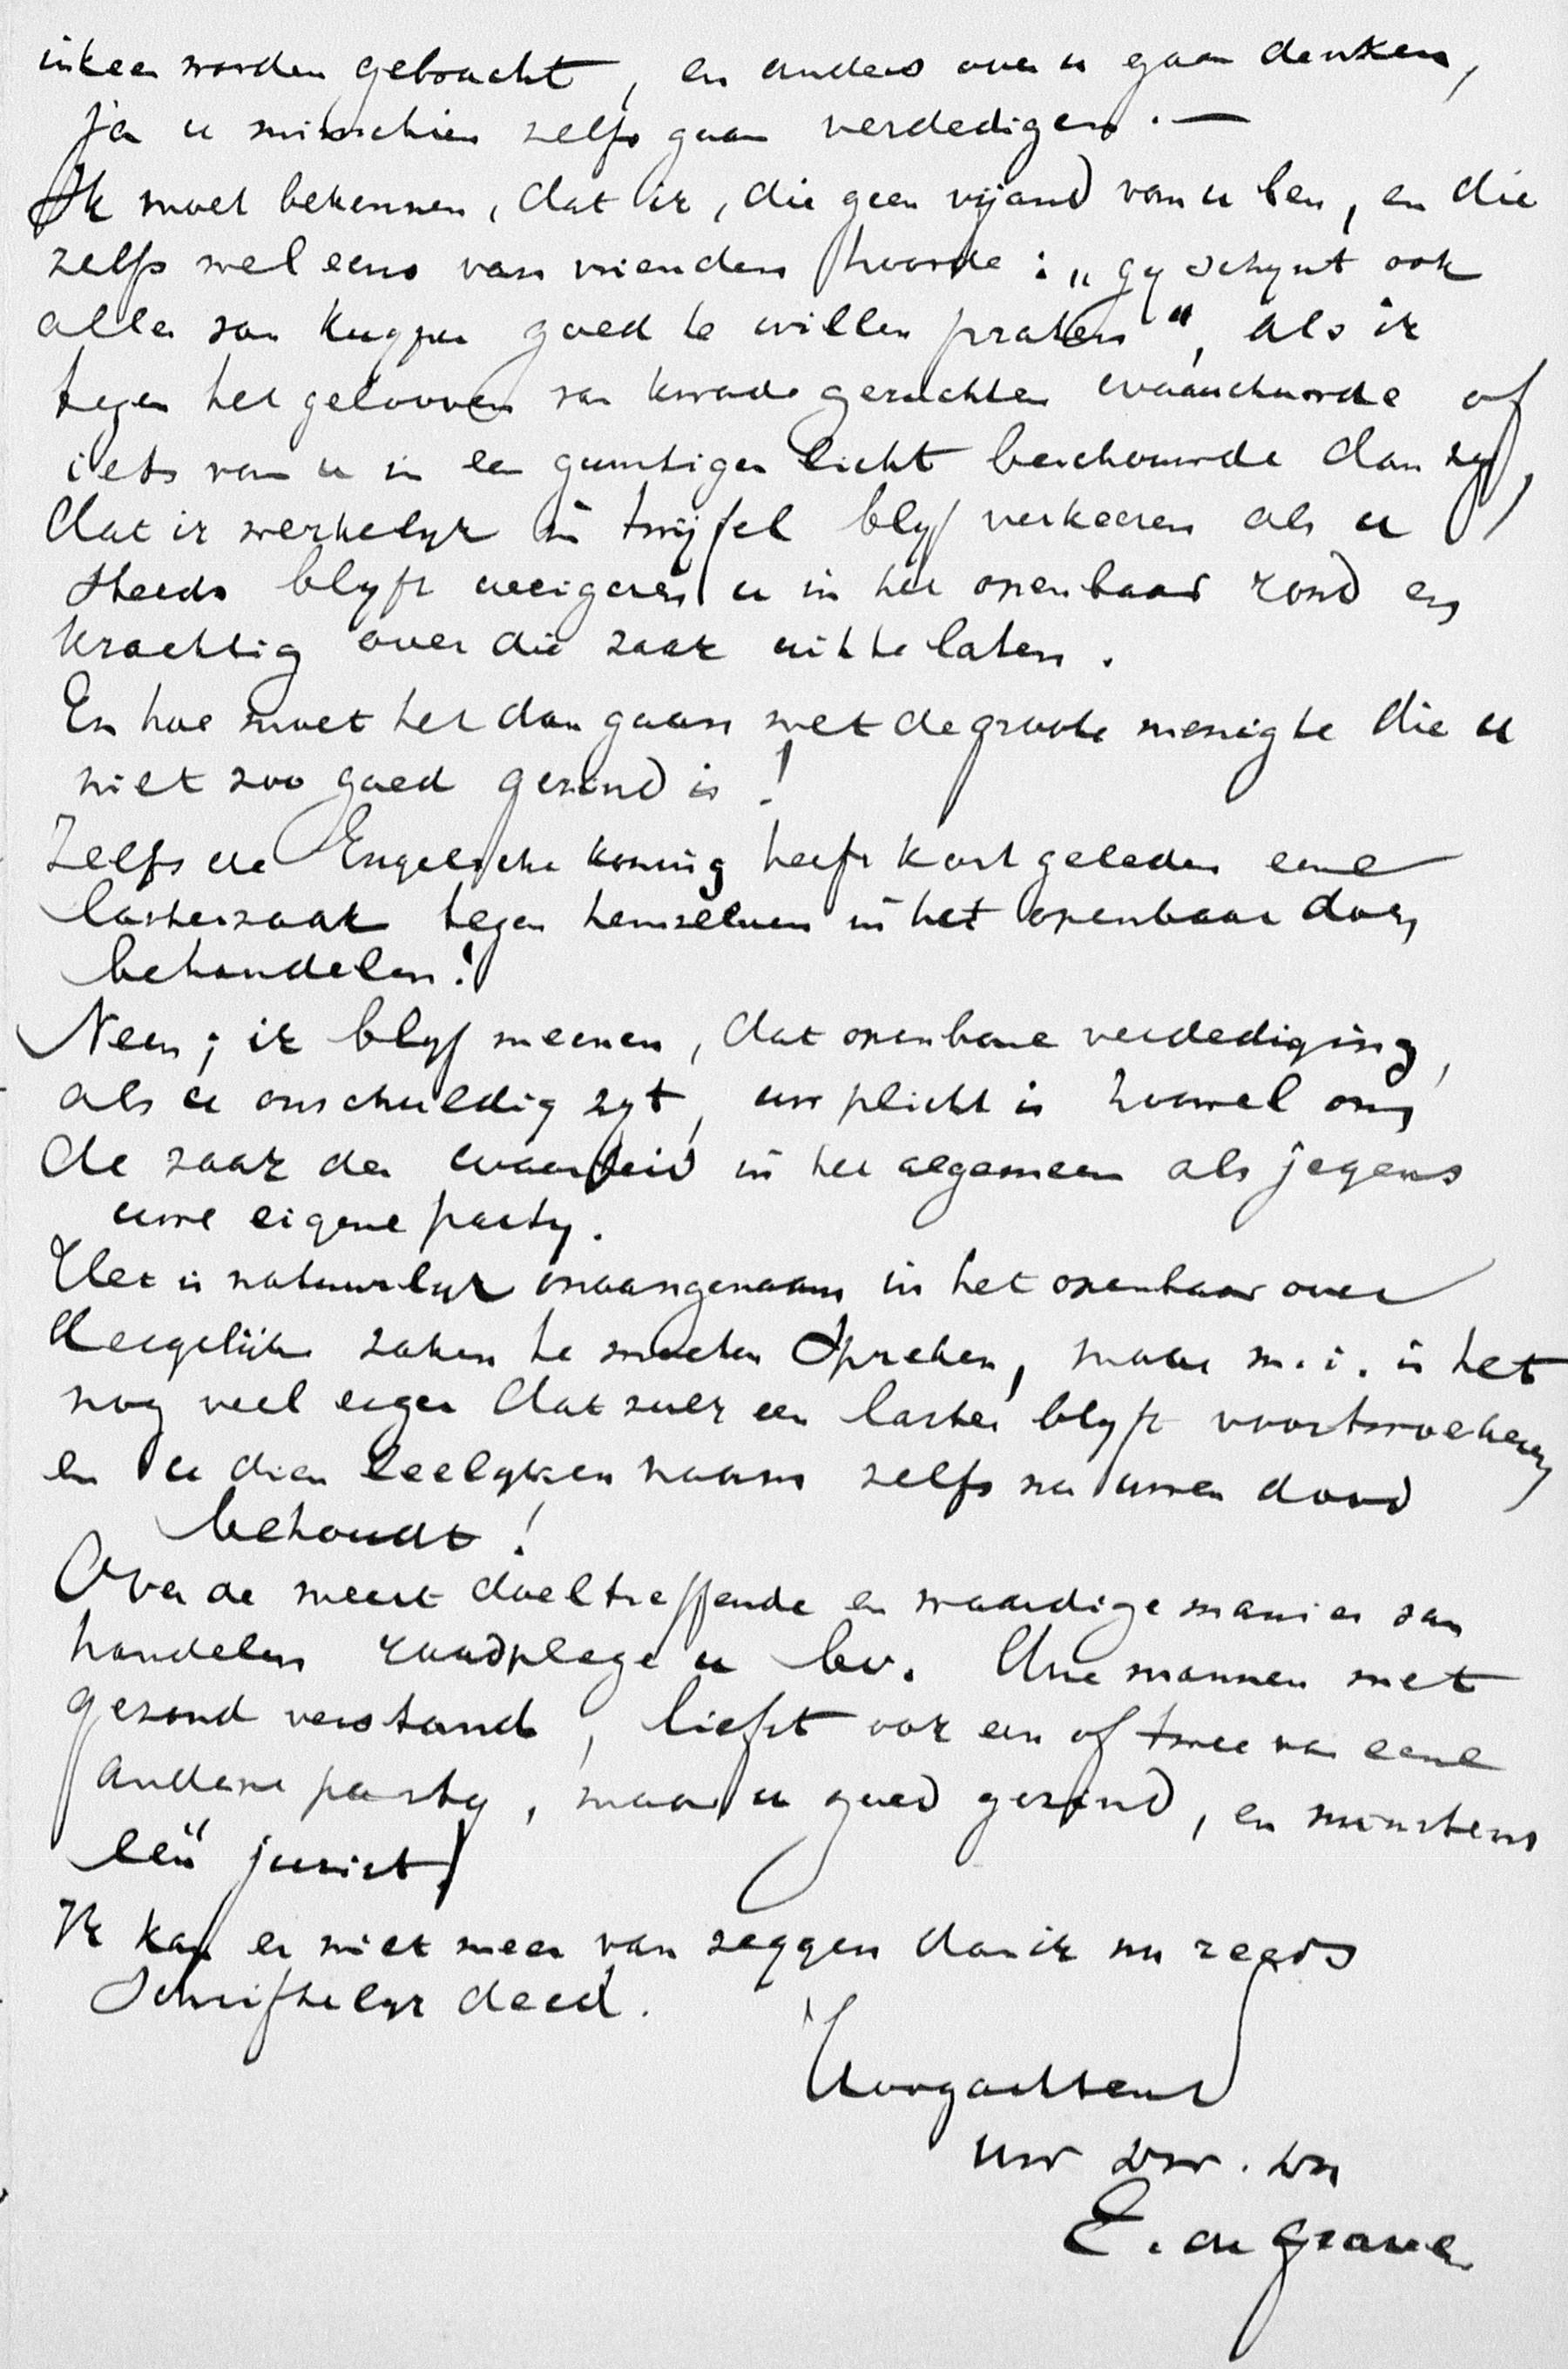 inkeer worden gebracht, en anders over u gaan denken,
ja u misschien zelfs gaan verdedigen. —
Ik moet bekennen, dat ik, die geen vijand van u ben, en die
zelfs wel eens van vrienden hoorde: „gy schynt ook
alles van Kuyper goed te willen praten", als ik
tegen het gelooven van kwade geruchten waarschuwde of
iets van u in een gunstiger licht beschouwde dan zy,
dat ik werkelyk in twijfel blyf verkeeren als u
steeds blyft weigeren u in het openbaar rond en
krachtig over die zaak uit te laten.
En hoe moet het dan gaan met de groote menigte die u
niet zoo goed gezind is!
Zelfs de Engelsche koning heeft kort geleden eene
lasterzaak tegen hemzelven in het openbaar doen
behandelen!
Neen; ik blyf meenen, dat openbare verdediging,
als u onschuldig zyt, uw plicht is zoowel om
de zaak der waarheid in het algemeen als jegens
uwe eigene party.
Het is natuurlyk onaangenaam in het openbaar over
dergelijke zaken te moeten spreken, maar m.i. is het
nog veel erger dat zulk een laster blyft voortwoekeren
en u dien leelyken naam zelfs na uwen dood
behoudt!
Over de meest doeltreffende en waardige manier van
handelen raadplege u bv. drie mannen met
gezond verstand, liefst ook een of twee van eene
andere party, maar u goed gezind, en minstens
één jurist!
Ik kan er niet meer van zeggen dan ik nu reeds
schriftelyk deed.
Hoogachtend
uw dw. dn
E. de Grave